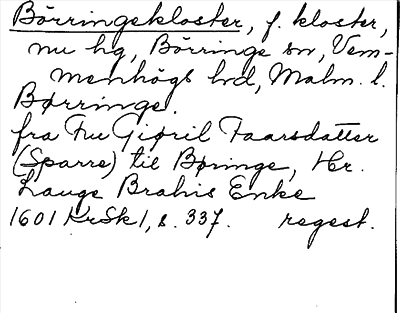 Börringekloster, f. kloster,
nu hg, Börringe sn, Vem-
menhögs hd, Malm. l.
Børringe.
fra Fru Giøril Faarsdatter
(Sparre) til Børinge, Hr.
Lauge Brahis Enke
1601 KrSk 1, s. 337. regest.